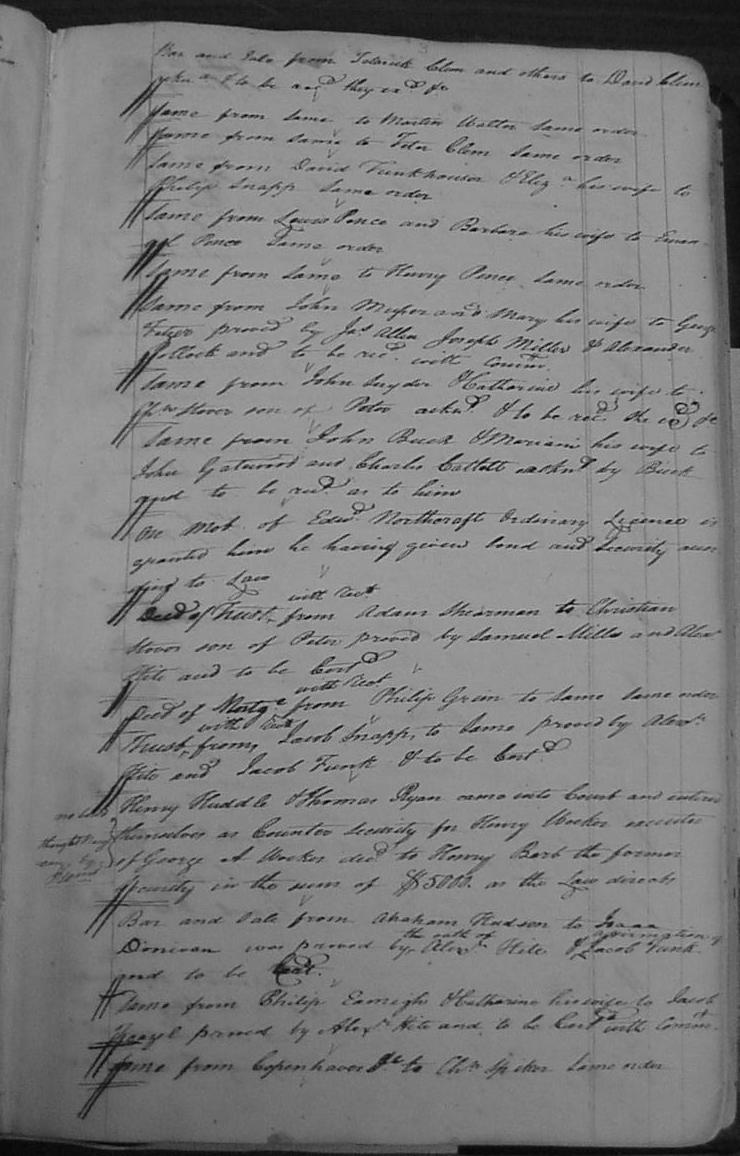 Bar and Sale from Clem and others to David Clem
to be recd they recd &c
Same from same to Martin Walter same order
Same from same to Peter Clem same order
Same from David Funkhouser & Eliza his wife to
Philip Snapp same order
Same from Lewis Pence and Barbara his wife to Eman-
uel Pence same order
Same from same to Henry Pence same order
Same from John and Mary his wife to George
proved by Jas Allen Joseph Miller & Alexander
Pollock and to be recd. with Commn.
Same from John Snyder & Catharine his wife to
Stover son of Peter acknd. & to be recd &c
Same from John Buck & Mariam his wife to
John Gatewood and Charles Catlett acknd by Buck
and to be recd. as to him
On Mot. of Edwd Northcraft Ordinary License is
granted him he having given bond and Security accor
ding to Law
with Rect
Deed of Trust, from Adam Shearman to Christian
Stover son of Peter proved by Samuel Mills and Alexr
Hite and to be Certd
with Rect
Deed of Mortge from Philip Grim to same same order
with Rect
Trust, from, Jacob Snapp, to Same proved by Alexr.
Hite and Jacob Funk & to be Certd.
Henry Huddle & Thomas Ryan came into Court and entered
themselves as Counter Security for Henry Wocker executor
of George A Wocker decd to Henry Barb the former
Security in the sum of $5000. as the Law directs
Bar and Sale from Abraham Hudson to Isaac
the oath of affirmation of
Donivan was proved by Alexr Hite & Jacob Funk
and to be Certd.
Same from Philip Eamigh & Catharine his wife to Jacob
proved by Alexr Hite and to be Certd with Commn.
Same from Copenhaver &c to Chn Spiker same order